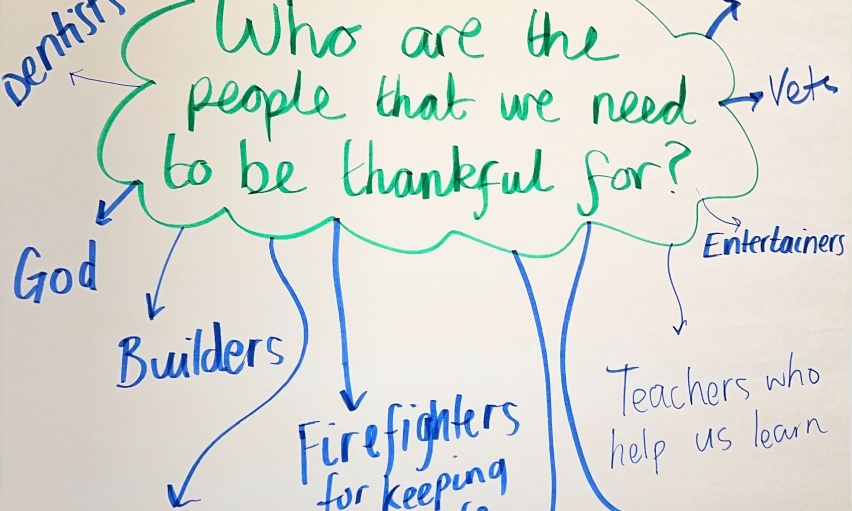 Dentists
Who are the
people that we need
to be thankful for?
Vets
God
Entertainers
Builders
Teachers who
help us learn
Firefighters
for keeping